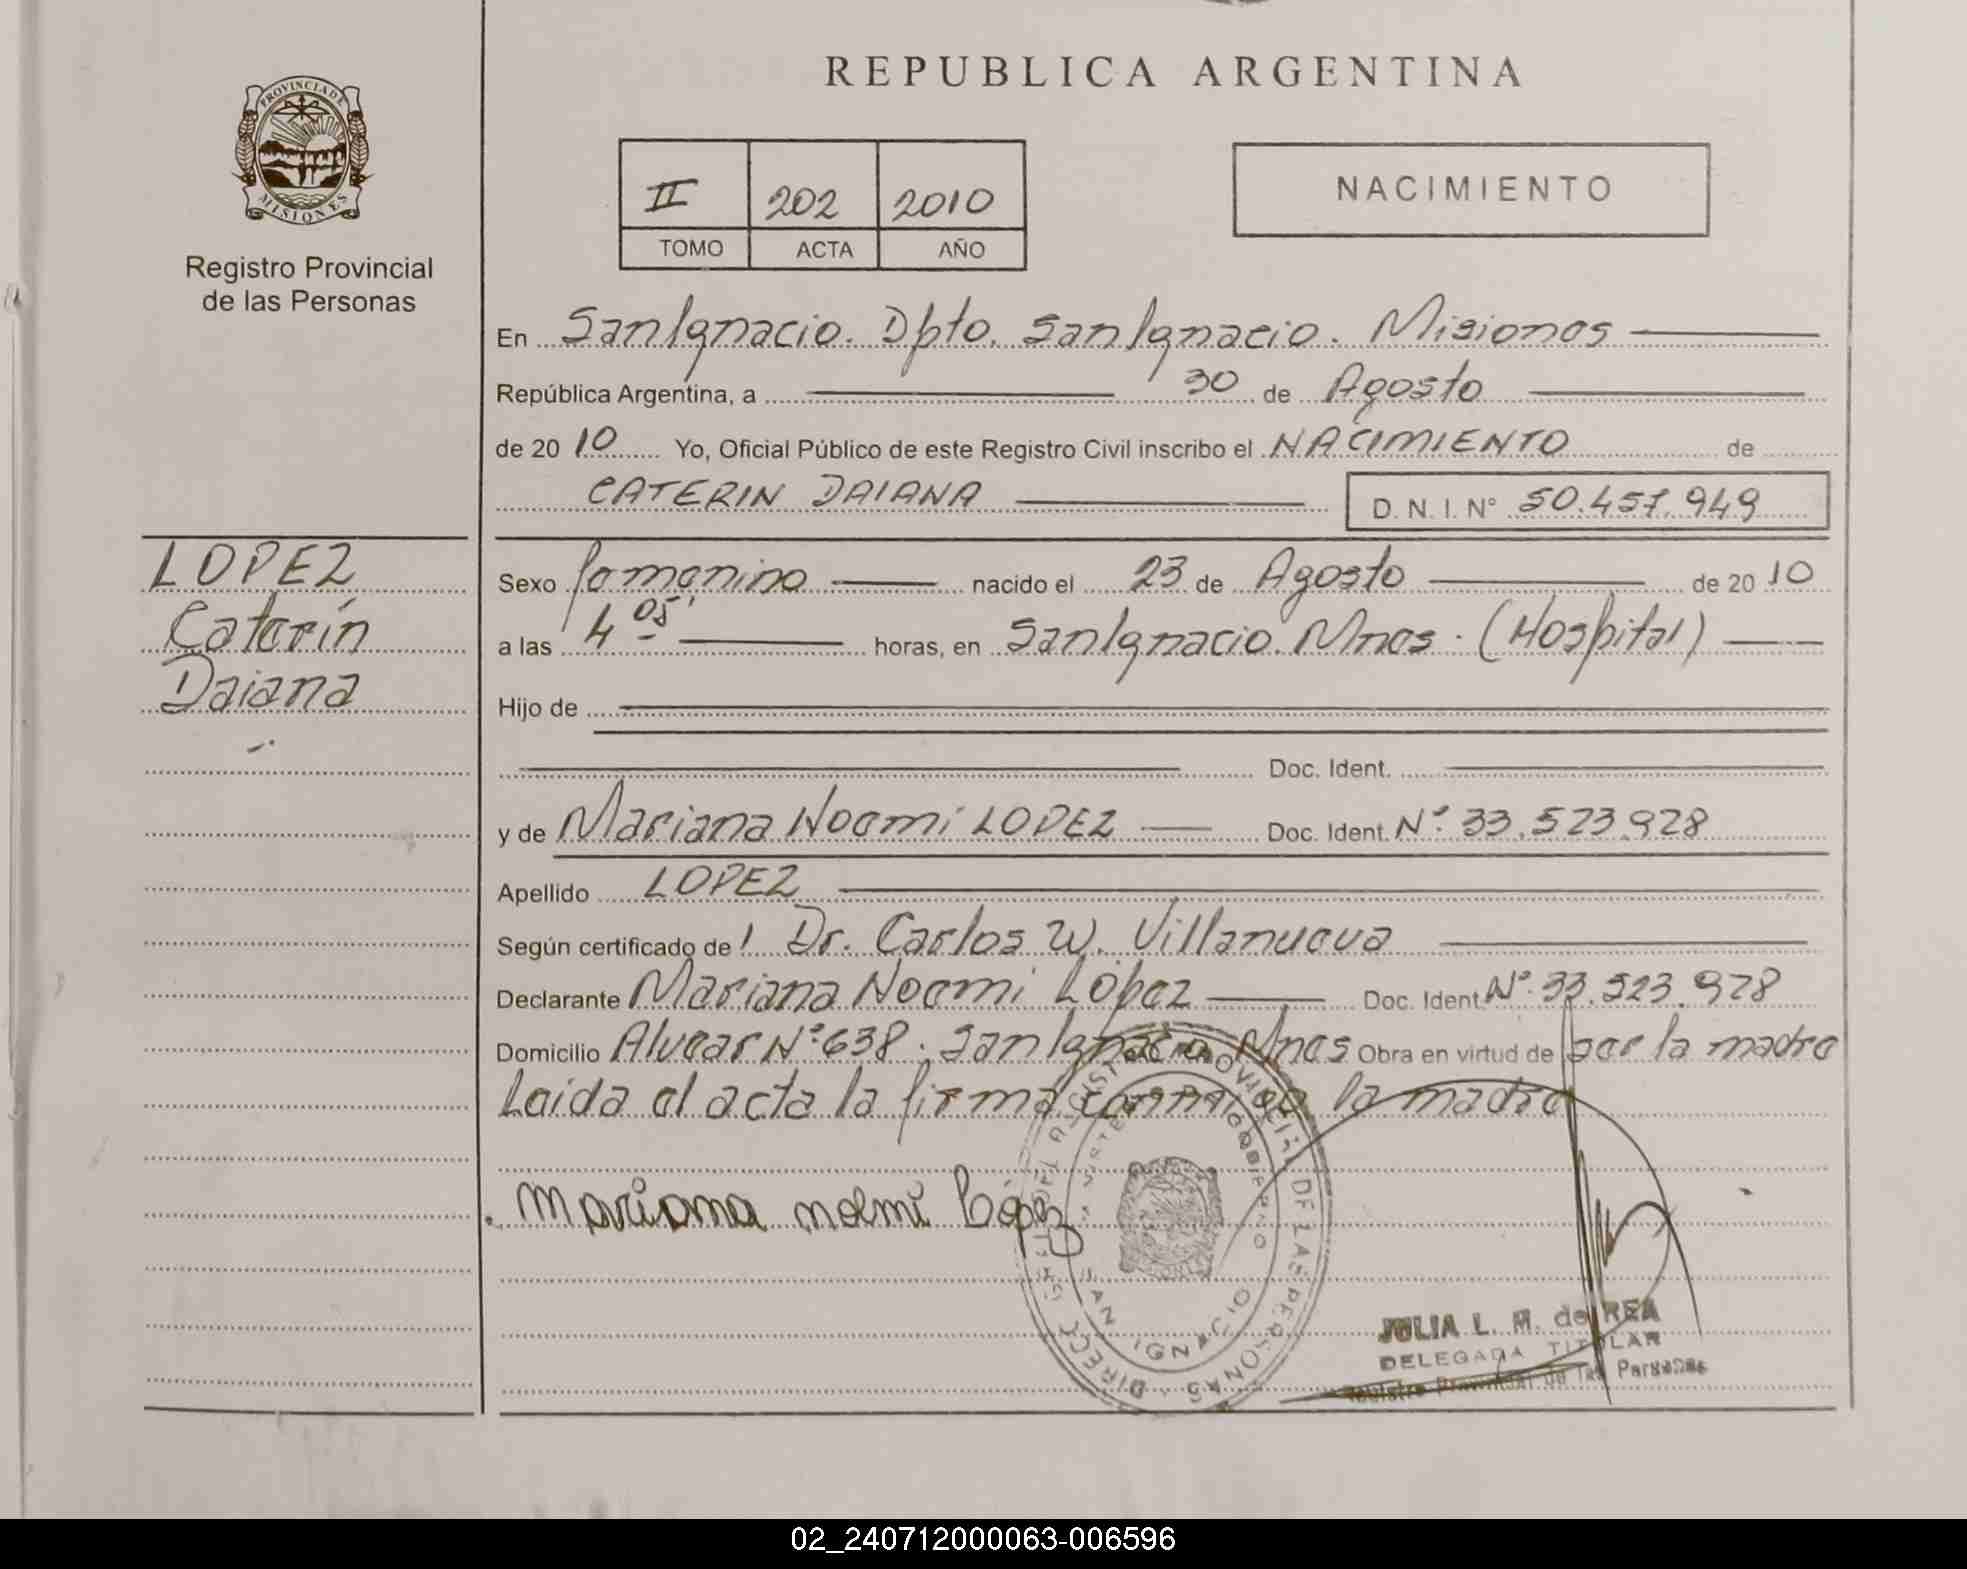 REPUBLICA ARGENTINA
PROVINCIA DE
MISIONES
Registro Provincial
de las Personas
II 202 2010
TOMO ACTA AÑO
NACIMIENTO
En SanIgnacio. Dpto. SanIgnacio. Misiones
República Argentina, a 30 de Agosto
de 20 10 Yo, Oficial Público de este Registro Civil inscribo el NACIMIENTO de
CATERIN DAIANA D. N. I. N° 50.457.949
LOPEZ
Caterin
Daiana
Sexo femenino nacido el 23 de Agosto de 20 10
a las 4 05' horas, en SanIgnacio. Mnes. (Hospital)
Hijo de
Doc. Ident.
y de Mariana Noemi LOPEZ Doc. Ident. N°. 33.523.928
Apellido LOPEZ
Según certificado de l Dr. Carlos W. Villanueva
Declarante Mariana Noemi López Doc. Ident. N°. 33.523.928
Domicilio Alvear N° 638. San Ignacio Mnes Obra en virtud de ser la madre
Leida el acta la firma conmigo la madre
Mariana noemi López
DIRECC. GRAL DEL REGISTRO PROVINCIAL DE LAS PERSONAS
SAN IGNACIO
JULIA L. M. de REA
DELEGADA TITULAR
Registro Provincial de las Personas
02_240712000063-006596